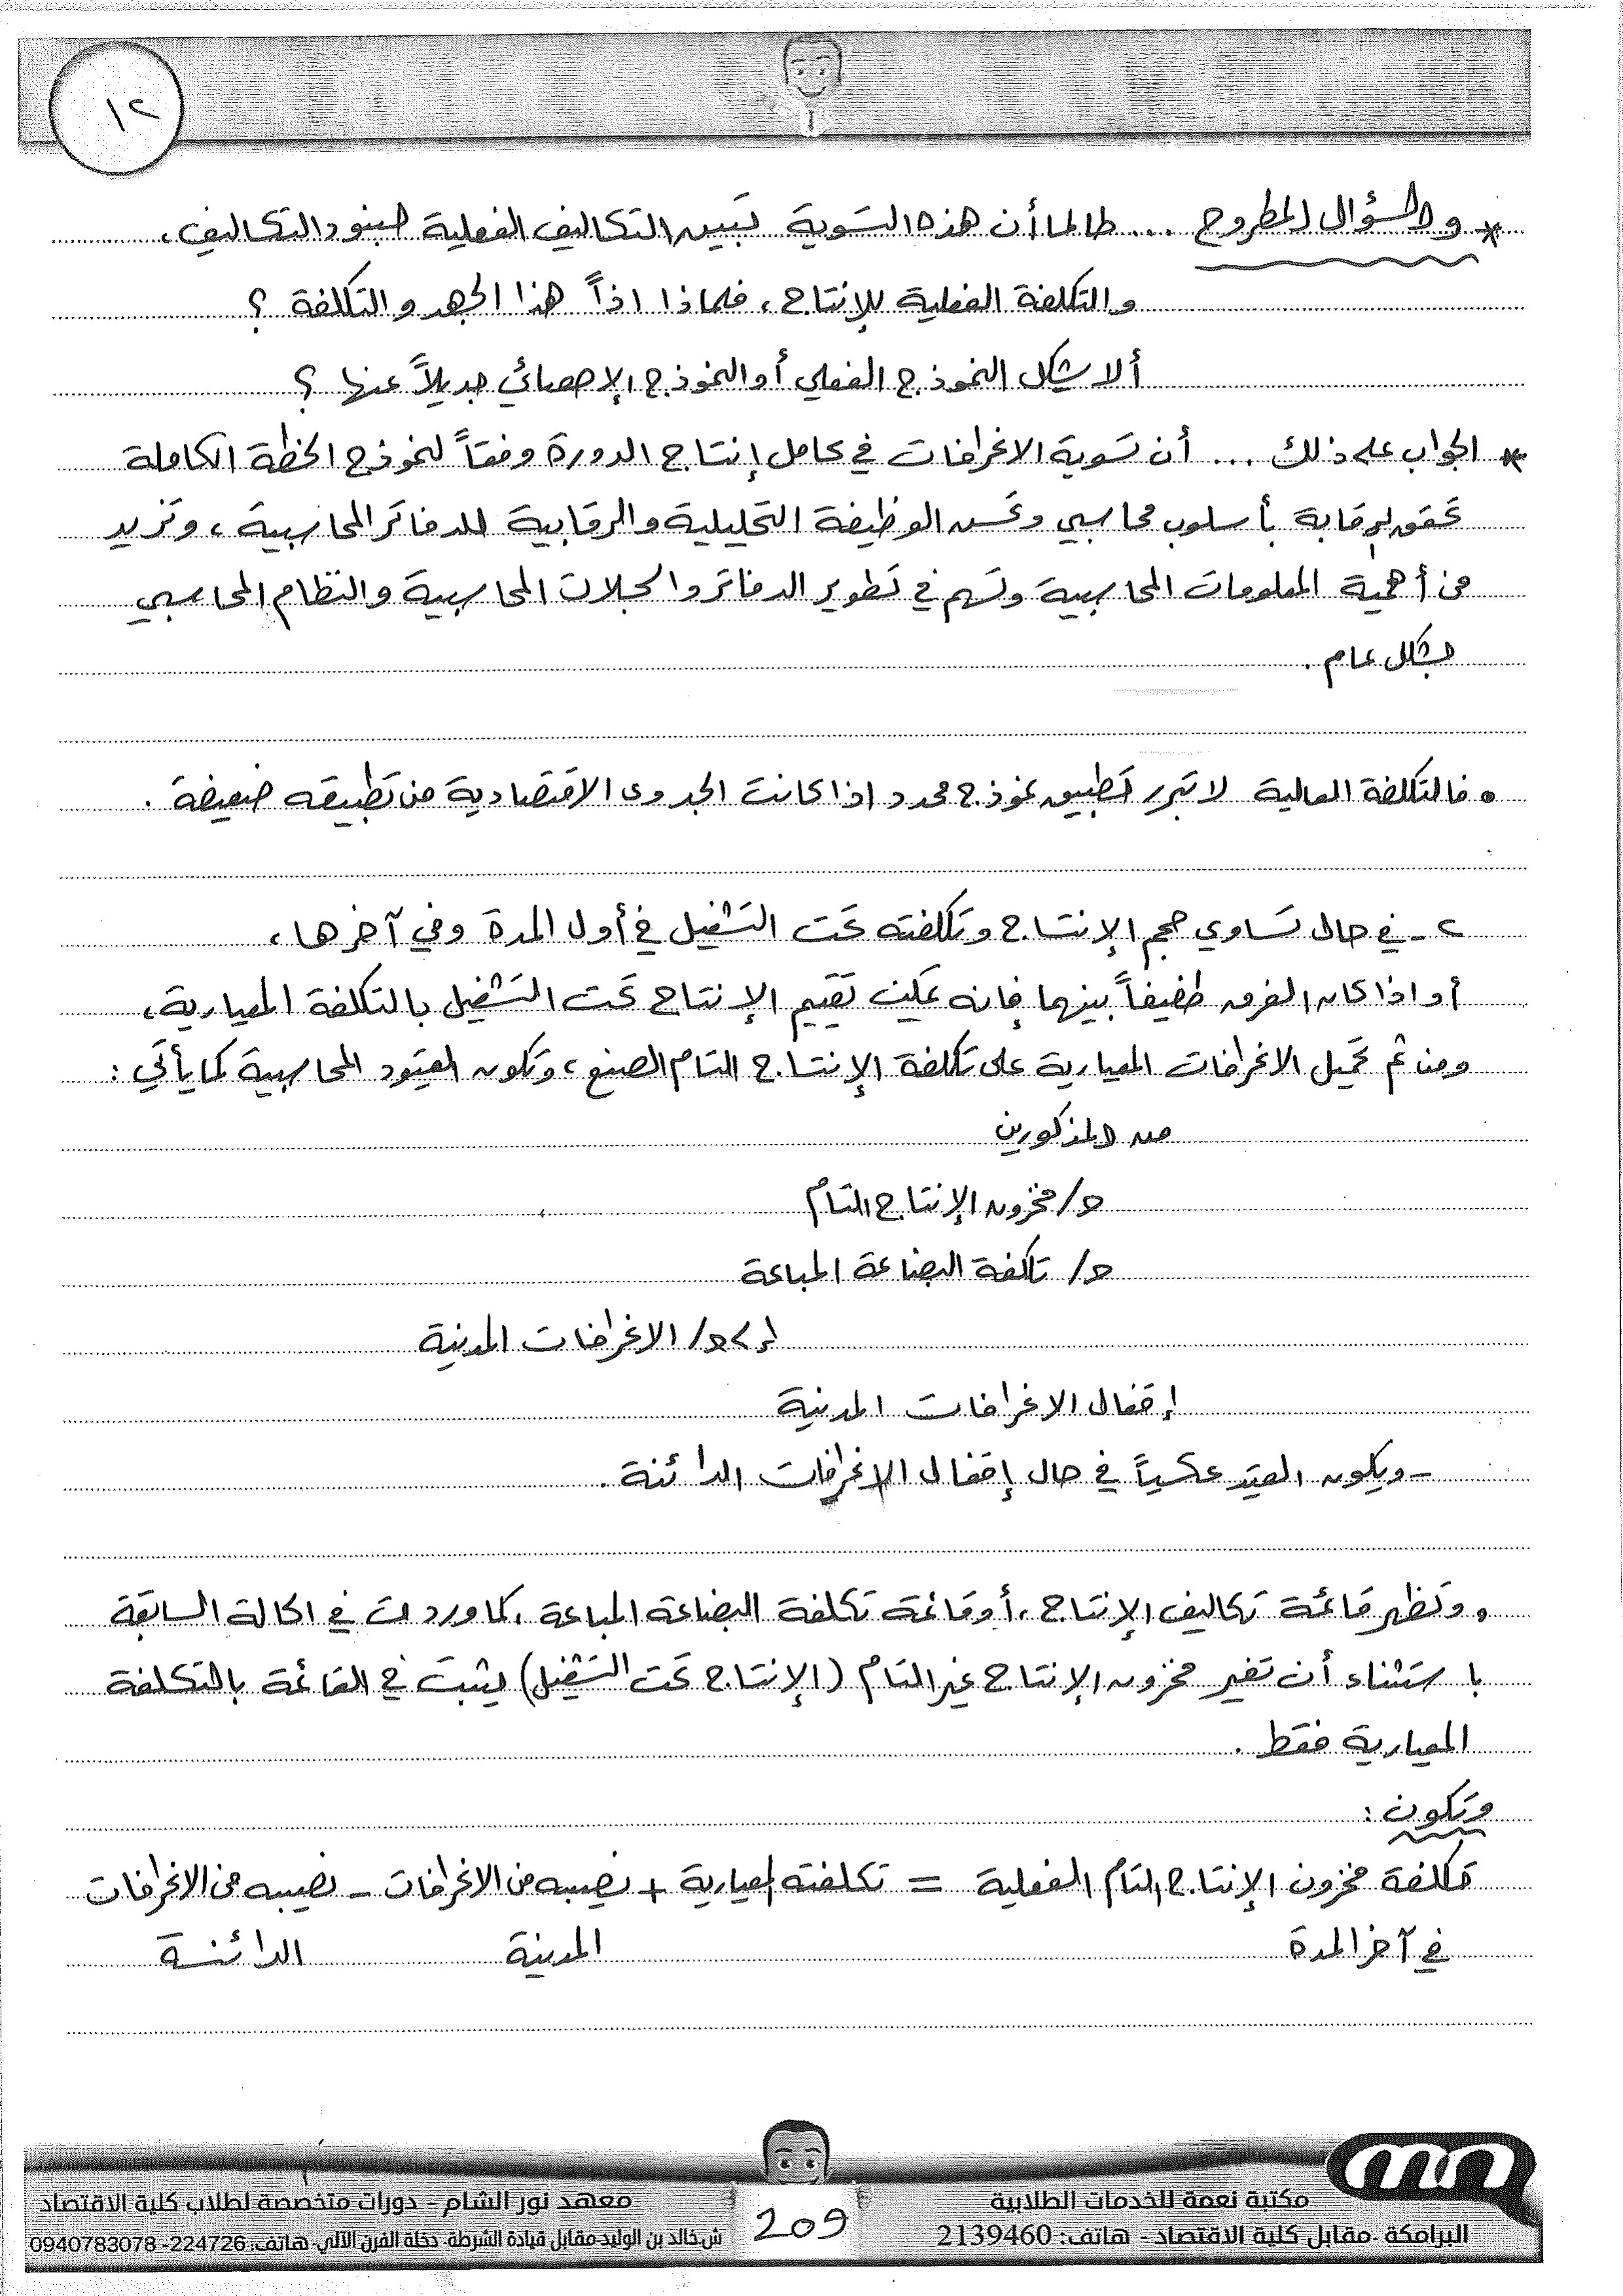 ١٢
* والسؤال المطروح ... طالما أن هذه التسوية تبين التكاليف الفعلية لبنود التكاليف،
والتكلفة الفعلية للإنتاج، فلماذا اذاً هذا الجهد والتكلفة ؟
ألا يشكل النموذج الفعلي أو النموذج الإحصائي بديلاً عنها ؟
* الجواب على ذلك ... أن تسوية الانحرافات في كامل إنتاج الدورة وفقاً لنموذج الخطة الكاملة
تحقق الرقابة بأسلوب محاسبي وتحسن الوظيفة التحليلية والرقابية للدفاتر المحاسبية، وتزيد
من أهمية المعلومات المحاسبية وتسهم في تطوير الدفاتر والسجلات المحاسبية والنظام المحاسبي
بشكل عام .
• فالتكلفة العالية لا تبرر تطبيق نموذج محدد اذا كانت الجدوى الاقتصادية من تطبيقه ضعيفة .
٢ - في حال تساوي حجم الإنتاج وتكلفته تحت التشغيل في أول المدة وفي آخرها،
أو اذا كان الفرق طفيفاً بينهما فإنه يمكن تقييم الإنتاج تحت التشغيل بالتكلفة المعيارية،
ومن ثم تحميل الانحرافات المعيارية على تكلفة الإنتاج التام الصنع، وتكون القيود المحاسبية كما يأتي :
من المذكورين
ح/ مخزون الإنتاج التام
ح/ تكلفة البضاعة المباعة
إلى ح/ الانحرافات المدينة
إقفال الانحرافات المدينة
- ويكون القيد عكسياً في حال إقفال الانحرافات الدائنة .
• وتظهر قائمة تكاليف الإنتاج، أو قائمة تكلفة البضاعة المباعة، كما وردت في الحالة السابقة
باستثناء أن تغير مخزون الإنتاج غير التام (الإنتاج تحت التشغيل) يثبت في القائمة بالتكلفة
المعيارية فقط .
وتكون :
تكلفة مخزون الإنتاج التام الفعلية = تكلفته المعيارية + نصيبه من الانحرافات - نصيبه من الانحرافات
في آخر المدة المدينة الدائنة
مكتبة نعمة للخدمات الطلابية
البرامكة -مقابل كلية الاقتصاد- هاتف: 2139460
209
معهد نور الشام - دورات متخصصة لطلاب كلية الاقتصاد
ش.خالد بن الوليد-مقابل قيادة الشرطة- دخلة الفرن الآلي- هاتف: 224726- 0940783078